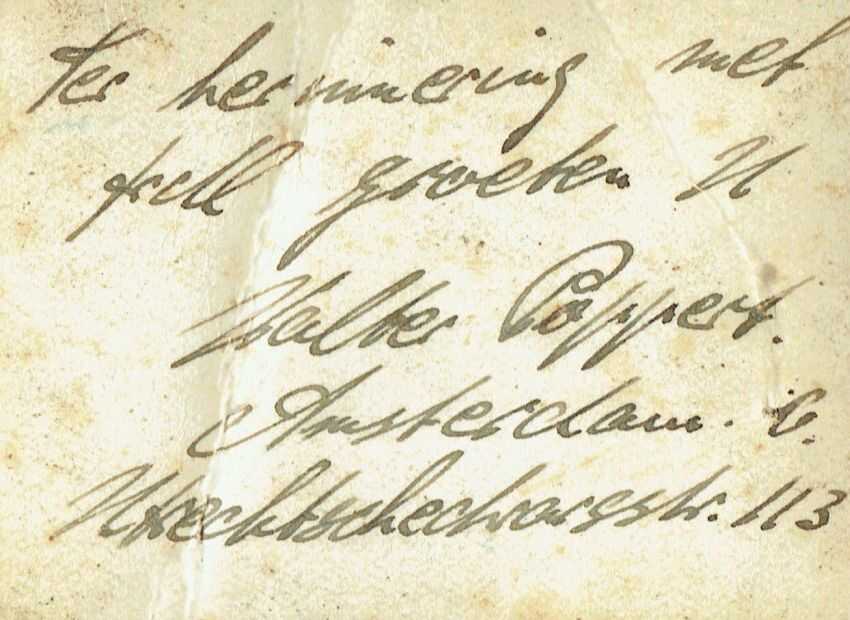 Ter herinnering met
groeten U
Walter Poppert.
Amsterdam. C.
Utrechtschedwarsstr. 113